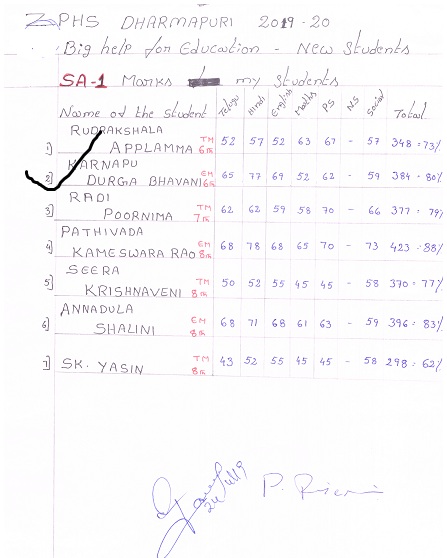 ZPHS DHARMAPURI 2019-20
Big help for Education - New Students
SA-1 Marks my Students
Name of the Student Telugu Hindi English Maths PS NS Social Total
1) RUDRAKSHALA
APPLAMMA TM 6th 52 57 52 63 67 - 57 348 = 73%
2) KARNAPU
DURGA BHAVANI EM 6th 65 77 69 52 62 - 59 384 - 80%
3) RADI
POORNIMA TM 7th 62 62 59 58 70 - 66 377 - 79%
4) PATHIVADA
KAMESWARA RAO EM 8th 68 78 68 65 70 - 73 423 = 88%
5) SEERA
KRISHNAVENI TM 8th 50 52 55 45 45 - 58 370 = 77%
6) ANNADULA
SHALINI EM 8th 68 71 68 61 63 - 59 396 = 83%
7) SK. YASIN TM 8th 43 52 55 45 45 - 58 298 = 62%